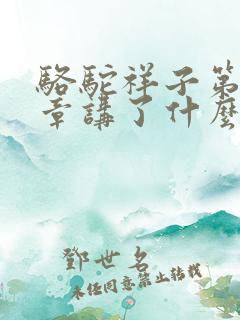 駱駝祥子第
章講了什麼
鄧世名
未经同意禁止转载